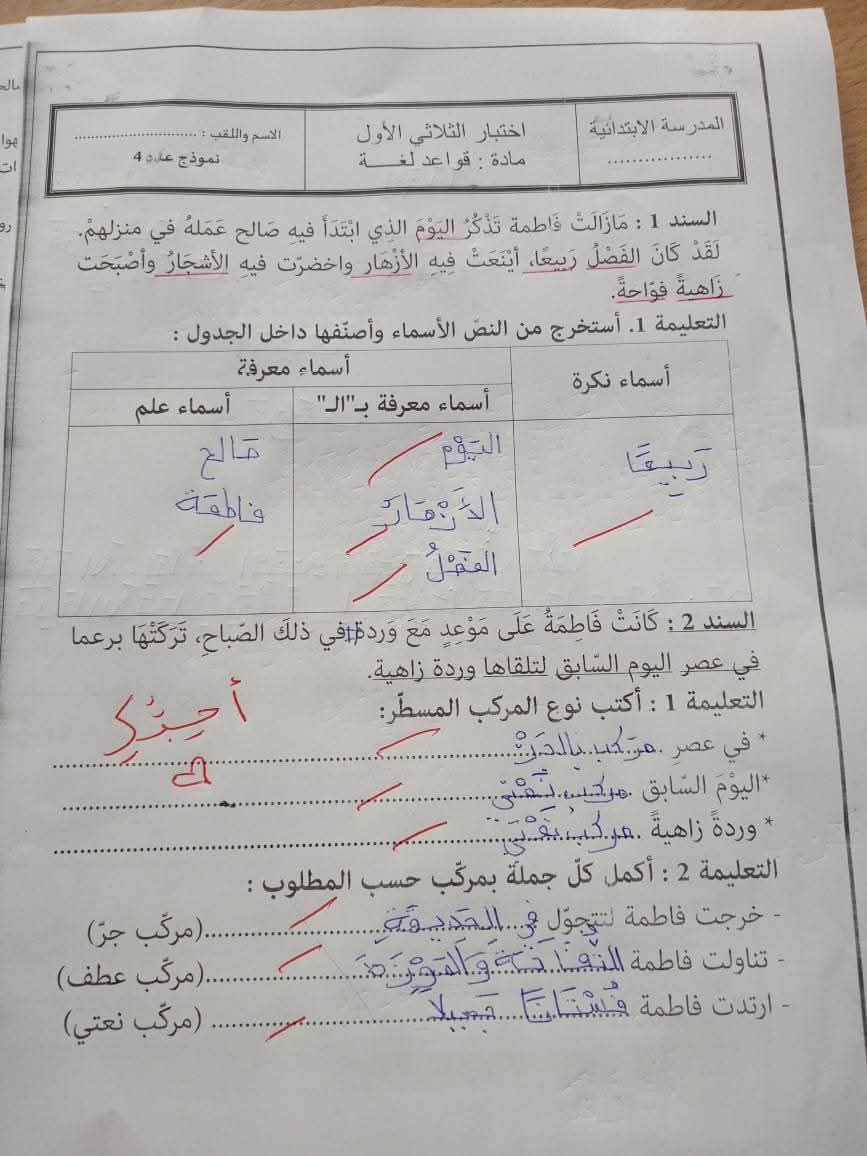 المدرسة الابتدائية
..................
اختبار الثلاثي الأول
مادة : قواعد لغـــــة
الاسم واللقب : ..............................
نموذج عدد 4
السند 1 : مَازَالَتْ فَاطمة تَذْكُرُ اليَوْمَ الذي ابْتَدَأَ فيهِ صَالح عَمَلهُ في منزلهمْ.
لَقَدْ كَانَ الفَصْلُ رَبيعًا، أيْنَعَتْ فِيهِ الأزْهَار واخضرّت فيهِ الأشجَارُ وأصْبَحَت
زَاهيةً فوّاحةً.
التعليمة 1. أستخرج من النصّ الأسماء وأصنّفها داخل الجدول :
أسماء نكرة
أسماء معرفة
أسماء معرفة بـ"الـ"
أسماء علم
رَبِيعًا
اليَوْم
الأَزْهَار
الفَصْلُ
صَالح
فاطمَة
السند 2 : كَانَتْ فَاطِمَةُ عَلَى مَوْعِدٍ مَعَ وَردة في ذلكَ الصّباحِ، تَرَكَتْهَا برعما
في عصر اليوم السّابق لتلقاها وردة زاهية.
التعليمة 1 : أكتب نوع المركب المسطّر:
* في عصرِ مركب بالجرّ
*اليوْمَ السّابق مركب نَعْتي
* وردةً زاهيةً مركب نَعْتي
أحسنت
التعليمة 2 : أكمل كلّ جملة بمركّب حسب المطلوب :
- خرجت فاطمة لتتجوّل في الحديقَةِ (مركّب جرّ)
- تناولت فاطمة التفّاحَةَ وَالمَوْزَ (مركّب عطف)
- ارتدت فاطمة فُسْتَانًا جَميلا (مركّب نعتي)